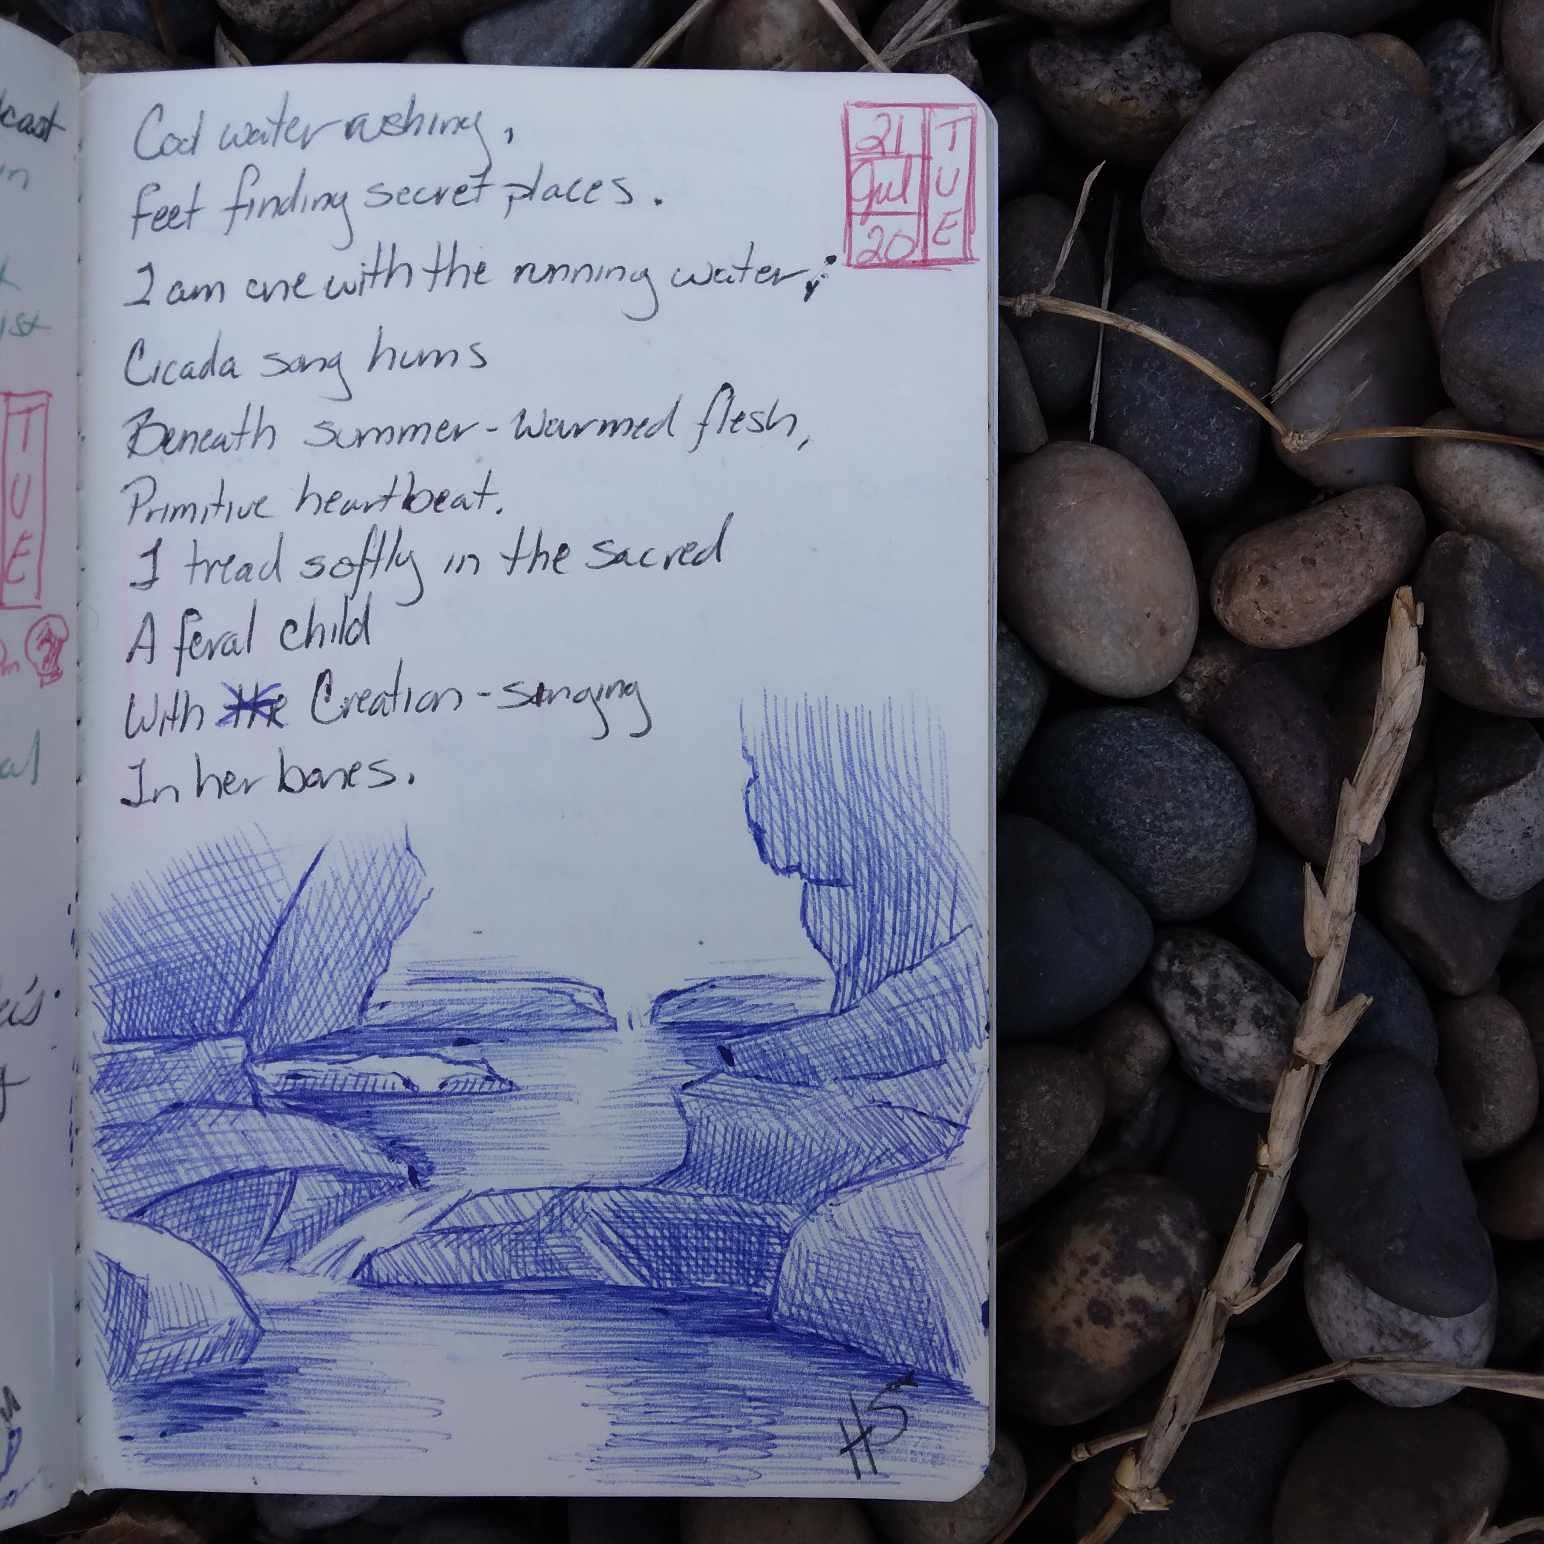 Cool water rushing,
feet finding secret places.
I am one with the running water;
Cicada song hums
Beneath summer-warmed flesh,
Primitive heartbeat.
I tread softly in the sacred
A feral child
With the Creation-singing
In her bones.
21
Jul
20
TUE
HS
cast
in
ist
TUE
al